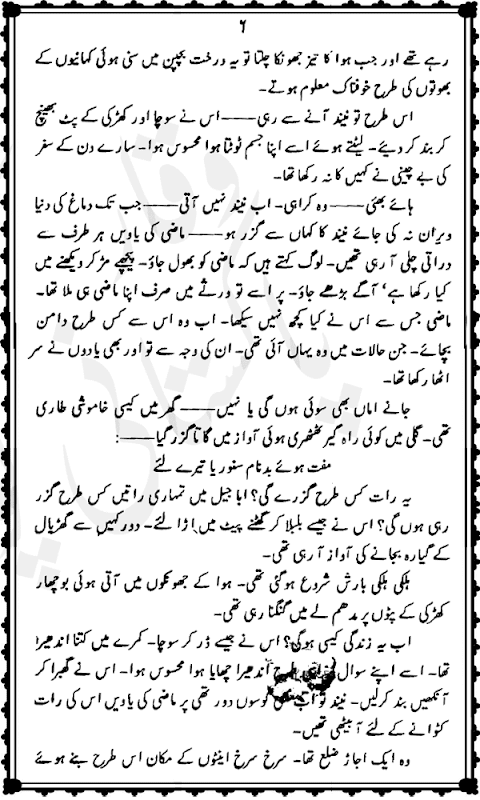 ۶
رہے تھے اور جب ہوا کا تیز جھونکا چلتا تو یہ درخت بچپن میں سنی ہوئی کہانیوں کے
بھوتوں کی طرح خوفناک معلوم ہوتے۔
اس طرح تو نیند آنے سے رہی——اس نے سوچا اور کھڑکی کے پٹ بھینچ
کر بند کر دیئے۔ لیٹتے ہوئے اسے اپنا جسم ٹوٹتا ہوا محسوس ہوا۔ سارے دن کے سفر
کی بے چینی نے کہیں کا نہ رکھا تھا۔
ہائے بھئی——وہ کراہی۔ اب نیند نہیں آتی——جب تک دماغ کی دنیا
ویران نہ کی جائے نیند کا کہاں سے گزر ہو——ماضی کی یادیں ہر طرف سے
دراتی چلی آ رہی تھیں۔ لوگ کہتے ہیں کہ ماضی کو بھول جاؤ۔ پیچھے مڑ کر دیکھنے میں
کیا رکھا ہے، آگے بڑھے جاؤ۔ پر اسے تو ورثے میں صرف اپنا ماضی ہی ملا تھا۔
ماضی جس سے اس نے کیا کچھ نہیں سیکھا۔ اب وہ اس سے کس طرح دامن
بچائے۔ جن حالات میں وہ یہاں آئی تھی۔ ان کی وجہ سے تو اور بھی یادوں نے سر
اٹھا رکھا تھا۔
جانے اماں بھی سوئی ہوں گی یا نہیں——گھر میں کیسی خاموشی طاری
تھی۔ گلی میں کوئی راہ گیر ٹھٹھری ہوئی آواز میں گاتا گزر گیا——:
مفت ہوئے بدنام سنوریا تیرے لئے
یہ رات کس طرح گزرے گی؟ ابا جیل میں تمہاری راتیں کس طرح گزر
رہی ہوں گی؟ اس نے جیسے بلبلا کر گھٹنے پیٹ میں اڑا لئے۔ دور کہیں سے گھڑیال
کے گیارہ بجانے کی آواز آ رہی تھی۔
ہلکی ہلکی بارش شروع ہو گئی تھی۔ ہوا کے جھونکوں میں آتی ہوئی بوچھار
کھڑکی کے پٹوں پر مدھم لے میں گنگنا رہی تھی۔
اب یہ زندگی کیسی ہوگی؟ اس نے جیسے ڈر کر سوچا۔ کمرے میں کتنا اندھیرا
تھا۔ اسے اپنے سوال طرح اندھیرا چھایا ہوا محسوس ہوا۔ اس نے گھبرا کر
آنکھیں بند کر لیں۔ نیند تو کوسوں دور تھی پر ماضی کی یادیں اس کی رات
کٹوانے کے لئے آ بیٹھی تھیں۔
وہ ایک اجاڑ ضلع تھا۔ سرخ سرخ اینٹوں کے مکان اس طرح بنے ہوئے